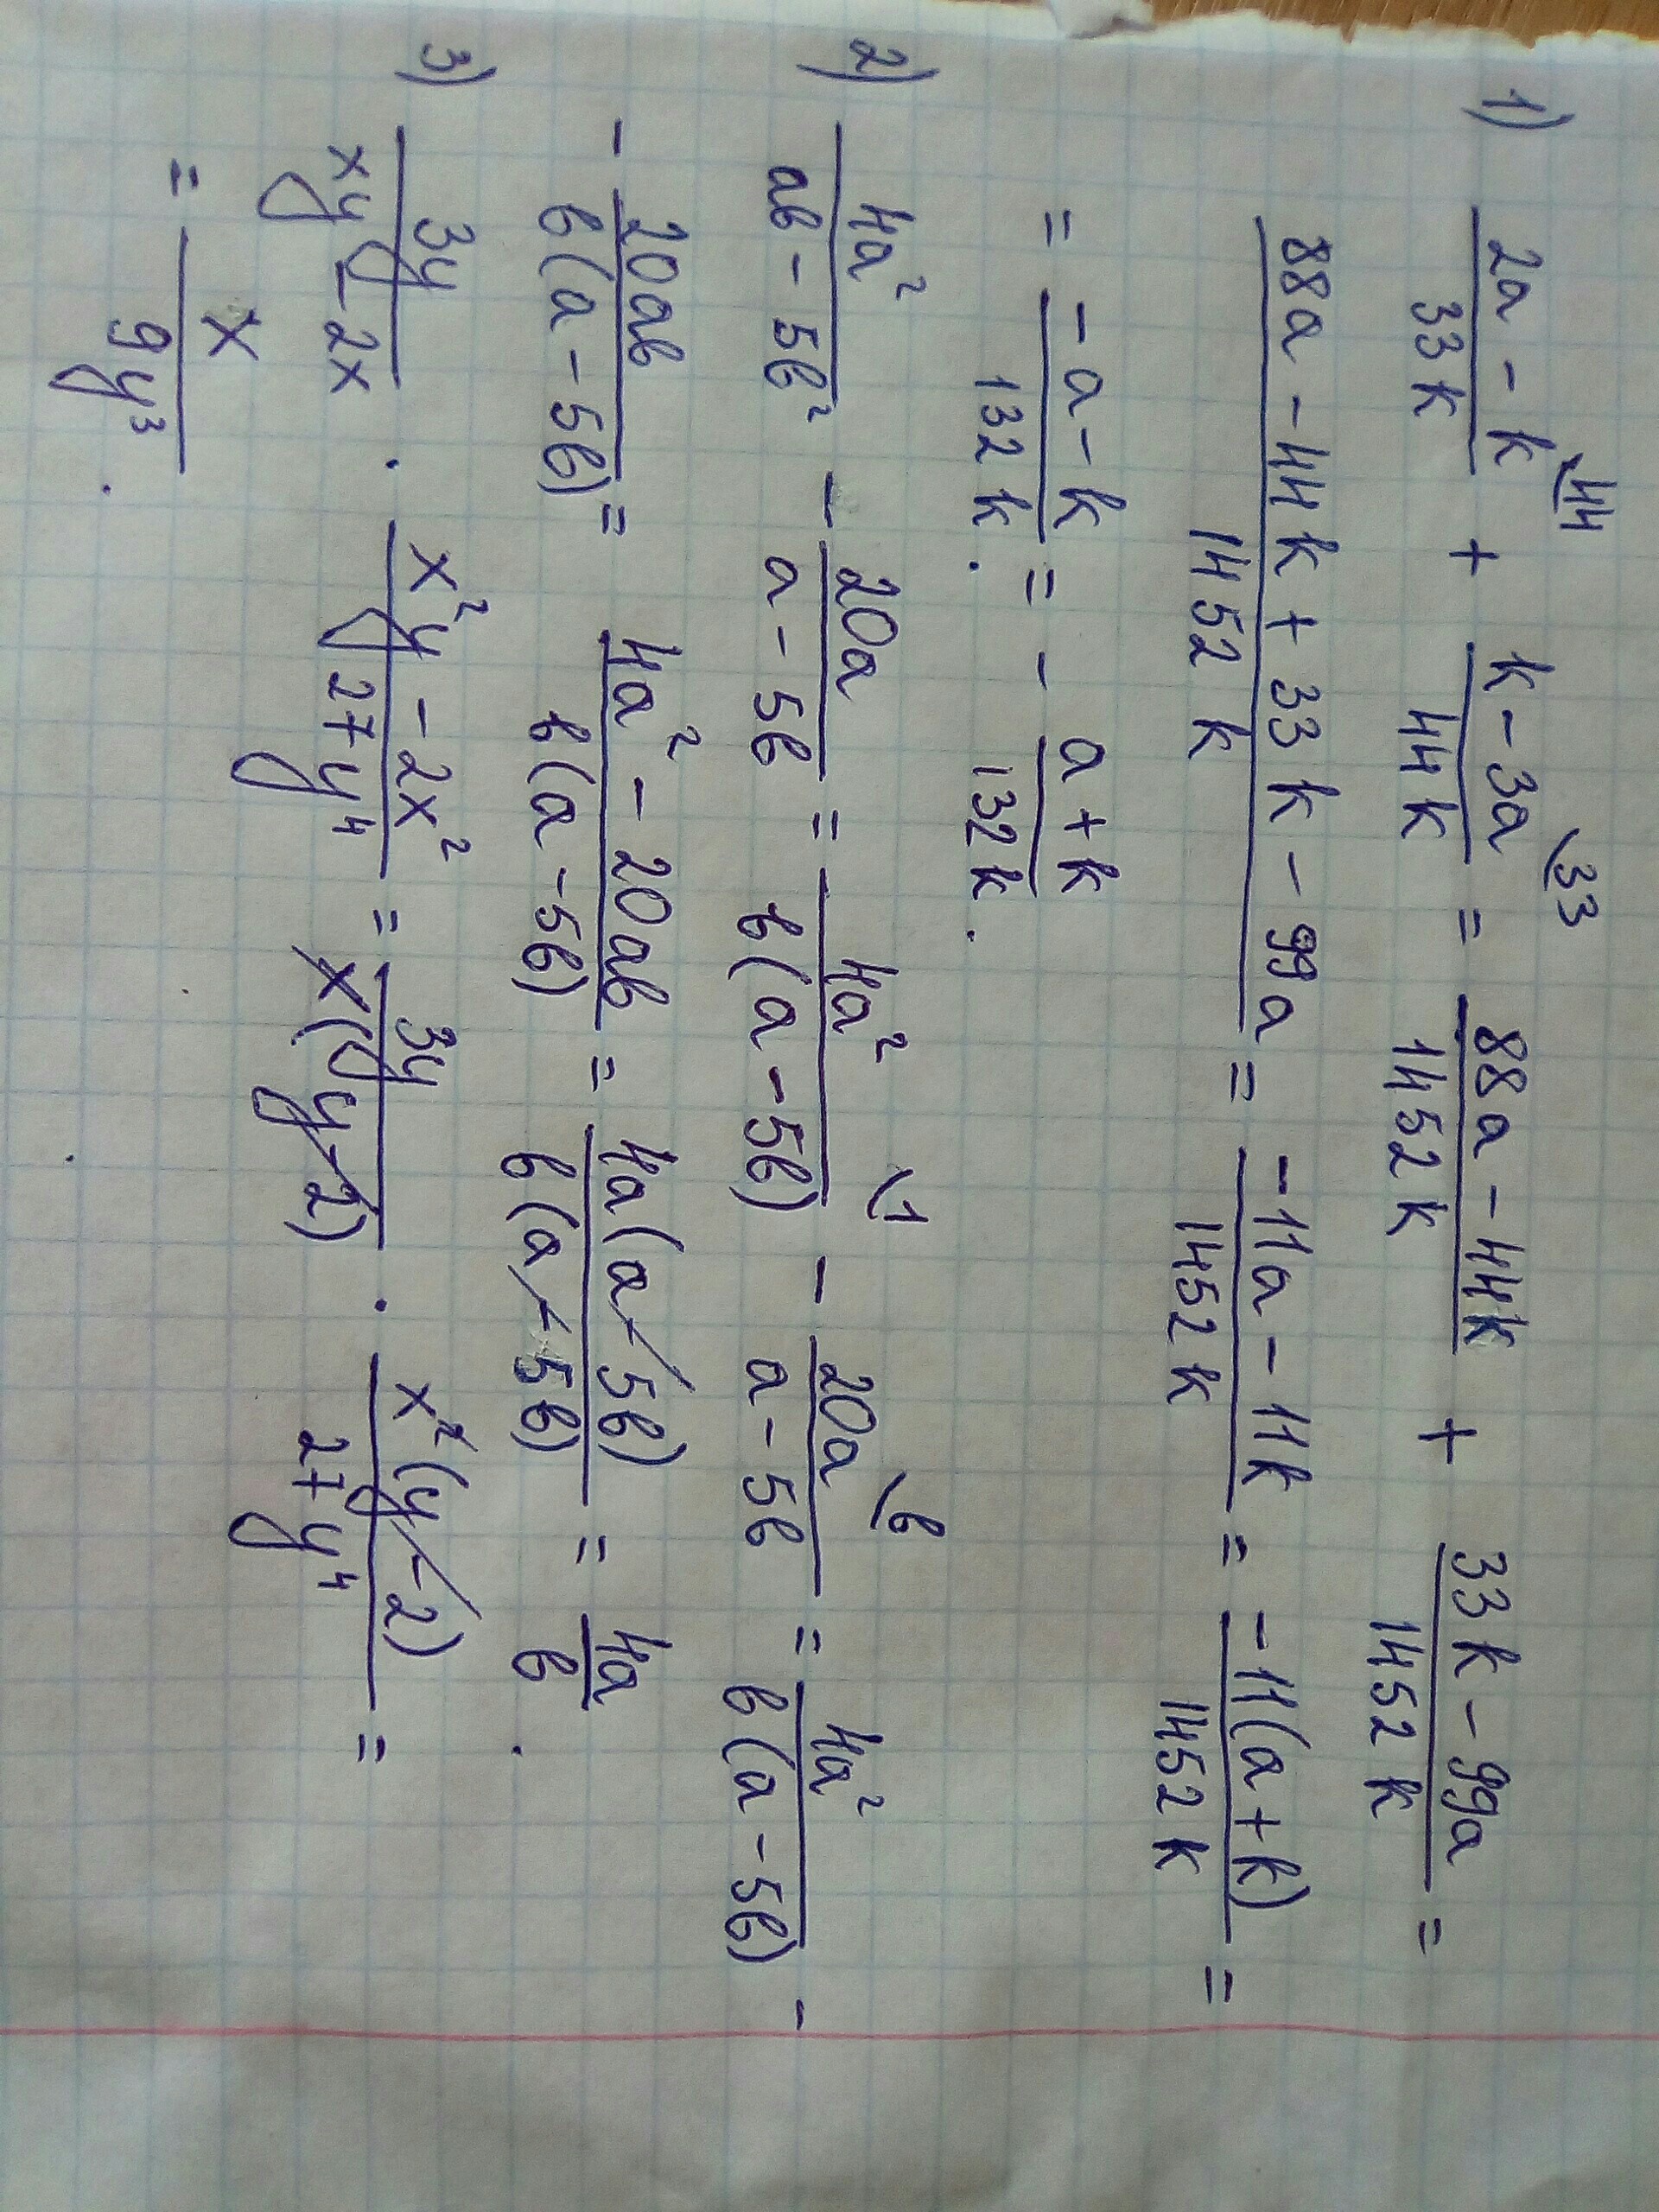 1) (2a - k)/(33k) ⌣44 + (k - 3a)/(44k) ⌣33 = (88a - 44k)/(1452k) + (33k - 99a)/(1452k) =
(88a - 44k + 33k - 99a)/(1452k) = (-11a - 11k)/(1452k) = (-11(a + k))/(1452k) =
= (-a - k)/(132k) = - (a + k)/(132k).
2) 4a²/(ab - 5b²) - 20a/(a - 5b) = 4a²/(b(a - 5b)) ⌣1 - 20a/(a - 5b) ⌣b = 4a²/(b(a - 5b)) -
- 20ab/(b(a - 5b)) = (4a² - 20ab)/(b(a - 5b)) = 4a(a - 5b)/(b(a - 5b)) = 4a/b.
3) 3y/(xy - 2x) · (x²y - 2x²)/(27y⁴) = 3y/(x(y - 2)) · x²(y - 2)/(27y⁴) =
= x/(9y³).